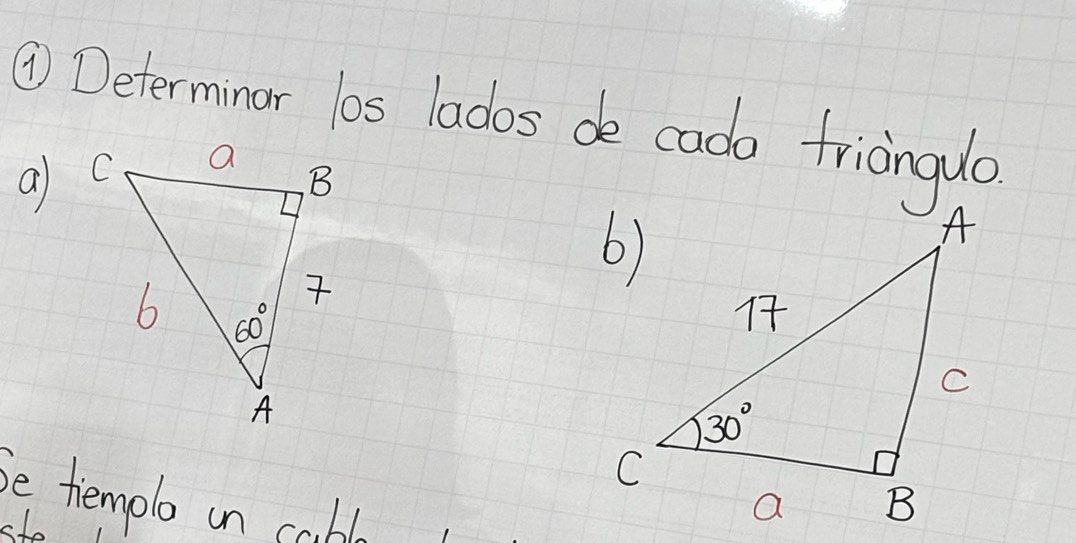 ① Determinar los lados de cada triàngulo.
a) C a B
b 60° 7
A
b) A
17
c
30°
C
a B
Se tiempla un